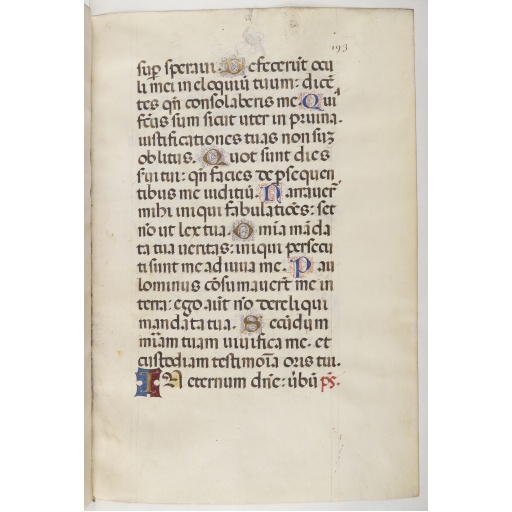 193
sup speraui. Defecerūt ocu
li mei in eloquiū tuum: dicē
tes qn̄ consolaberis me. Qui
fc̄us sum sicut uter in pruina.
iustificationes tuas non suꝫ
oblitus. Quot sunt dies
serui tui: qn̄ facies de psequen
tibus me iuditiū. Narrauer̄
mihi iniqui fabulatiōes: set
nō ut lex tua. Omīa māda
ta tua ueritas: iniqui persecu
ti sunt me adiuua me. Pau
lominus cōsumauert̄ me in
terra: ego aūt nō dereliqui
mandata tua. Secūdum
mīam tuam uiuifica me. et
custodiam testimōia oris tui.
IN eternum dn̄e: ūbū ps̄.